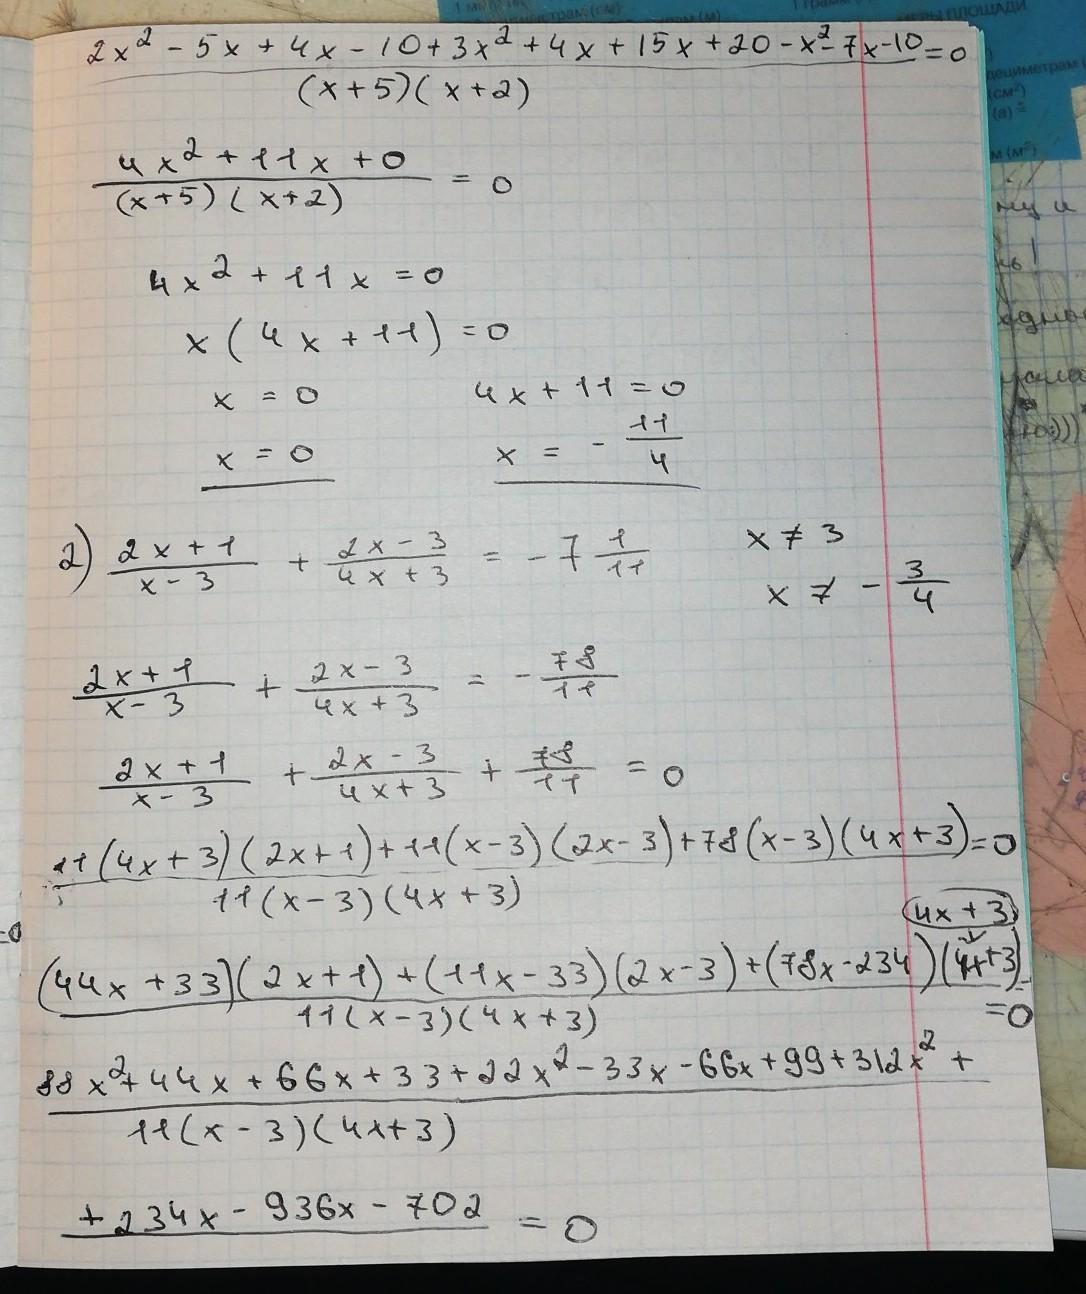 2x² - 5x + 4x - 10 + 3x² + 4x + 15x + 20 - x² - 7x - 10 = 0
(x+5)(x+2)
4x² + 11x + 0 = 0
(x+5)(x+2)
4x² + 11x = 0
x(4x + 11) = 0
x = 0 4x + 11 = 0
x = 0 x = - 11/4
2) (2x+1)/(x-3) + (2x-3)/(4x+3) = -7 1/11 x ≠ 3
x ≠ - 3/4
(2x+1)/(x-3) + (2x-3)/(4x+3) = - 78/11
(2x+1)/(x-3) + (2x-3)/(4x+3) + 78/11 = 0
11(4x+3)(2x+1) + 11(x-3)(2x-3) + 78(x-3)(4x+3) = 0
11(x-3)(4x+3)
(4x+3)
(44x+33)(2x+1) + (11x-33)(2x-3) + (78x-234)(4x+3)
11(x-3)(4x+3) = 0
88x² + 44x + 66x + 33 + 22x² - 33x - 66x + 99 + 312x² +
11(x-3)(4x+3)
+ 234x - 936x - 702 = 0